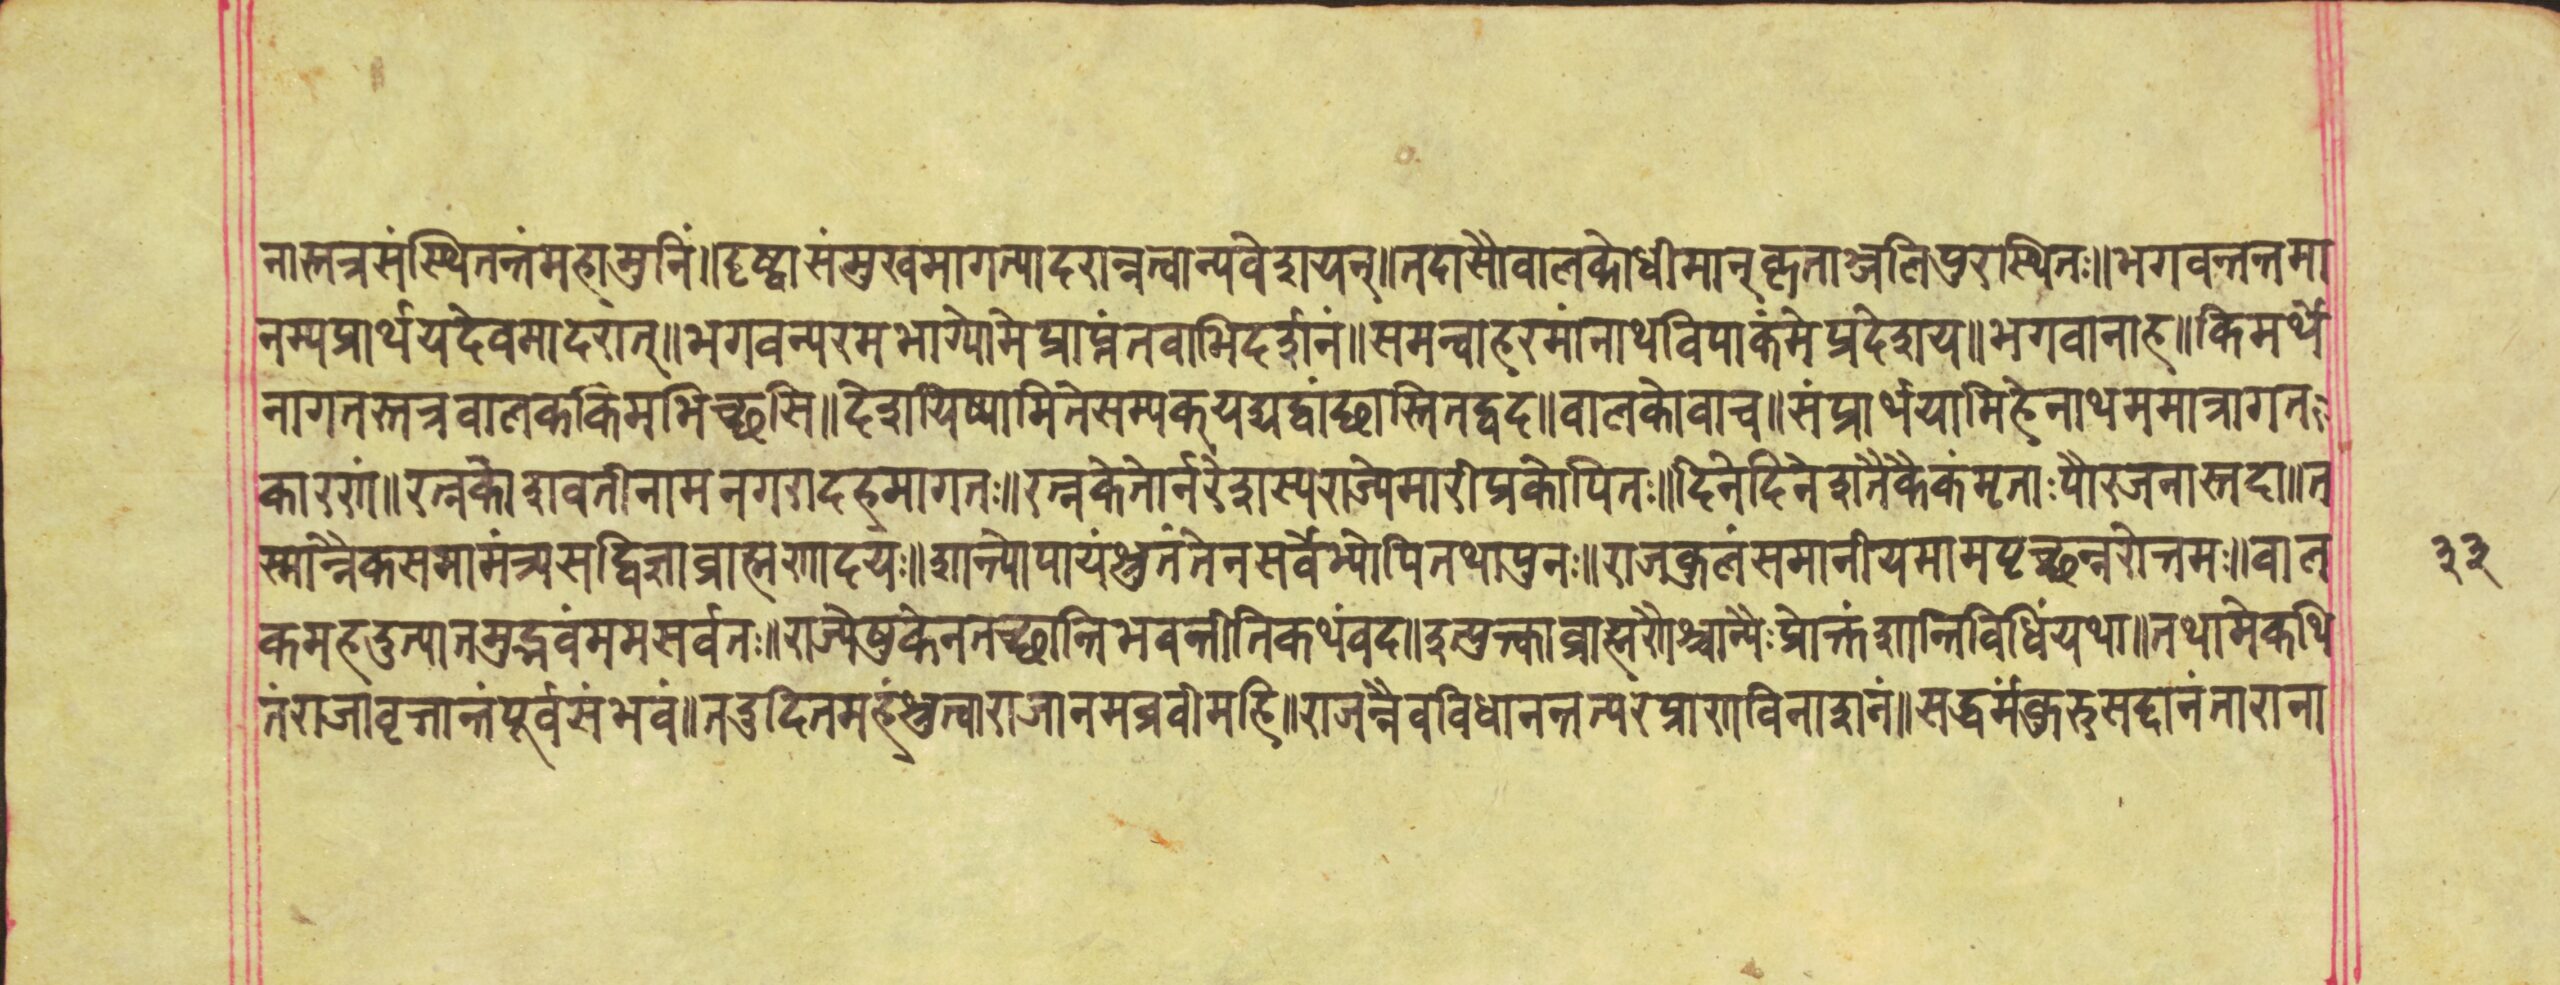 नास्तत्रसंस्थितन्तंमहामुनिं॥दृष्ट्वासंमुखमागत्यादरान्नत्वान्यवेशयन्॥तदासौवालकोधीमान्कृताञ्जलिपुरास्थितः॥भगवन्तन्तमा
नम्यप्रार्थयदेवमादरात्॥भगवन्परमभाग्योमेप्राप्नंतवाभिदर्शनं॥समन्वाहरमांनाथविपाकंमेप्रदेशय॥भगवानाह॥किमर्थे
नागतस्तत्रवालककिमभिच्छसि॥देशयिष्यामितेसम्यक्यद्यद्वांछास्तितद्वद॥वालकोवाच॥संप्रार्थयामिहेनाथममात्रागत
कारणं॥रत्नकोशवतीनामनगरादहमागतः॥रत्नकेतोर्नरेशस्यराज्येमारीप्रकोपितः॥दिनेदिनेशतैकैकंमृताःपौरजनास्तदा॥त
स्मान्नैकसमामंत्र्यसद्विज्ञाब्राह्मणादयः॥शान्त्योपायंश्रुतंतेनसर्वेभ्योपितथापुनः॥राजकुलंसमानीयमामपृच्छन्नरोत्तमः॥वाल
कमहदुत्पातमुद्भवंममसर्वतः॥राज्येषुकेनतच्छान्तिभवन्तीतिकथंवद॥दुत्प्रुत्काब्राह्मणैश्चान्यैःप्रोक्तंशान्तिविधिंयथा॥तथामेकथि
तंराजावृत्तान्तंपूर्वसंभवं॥तदुदितमहंश्रुत्वाराजानमब्रवीमहि॥राजन्नैवविधानन्तत्परप्राणविनाशनं॥सद्धर्मंकुरुसद्दानंताराना
३३